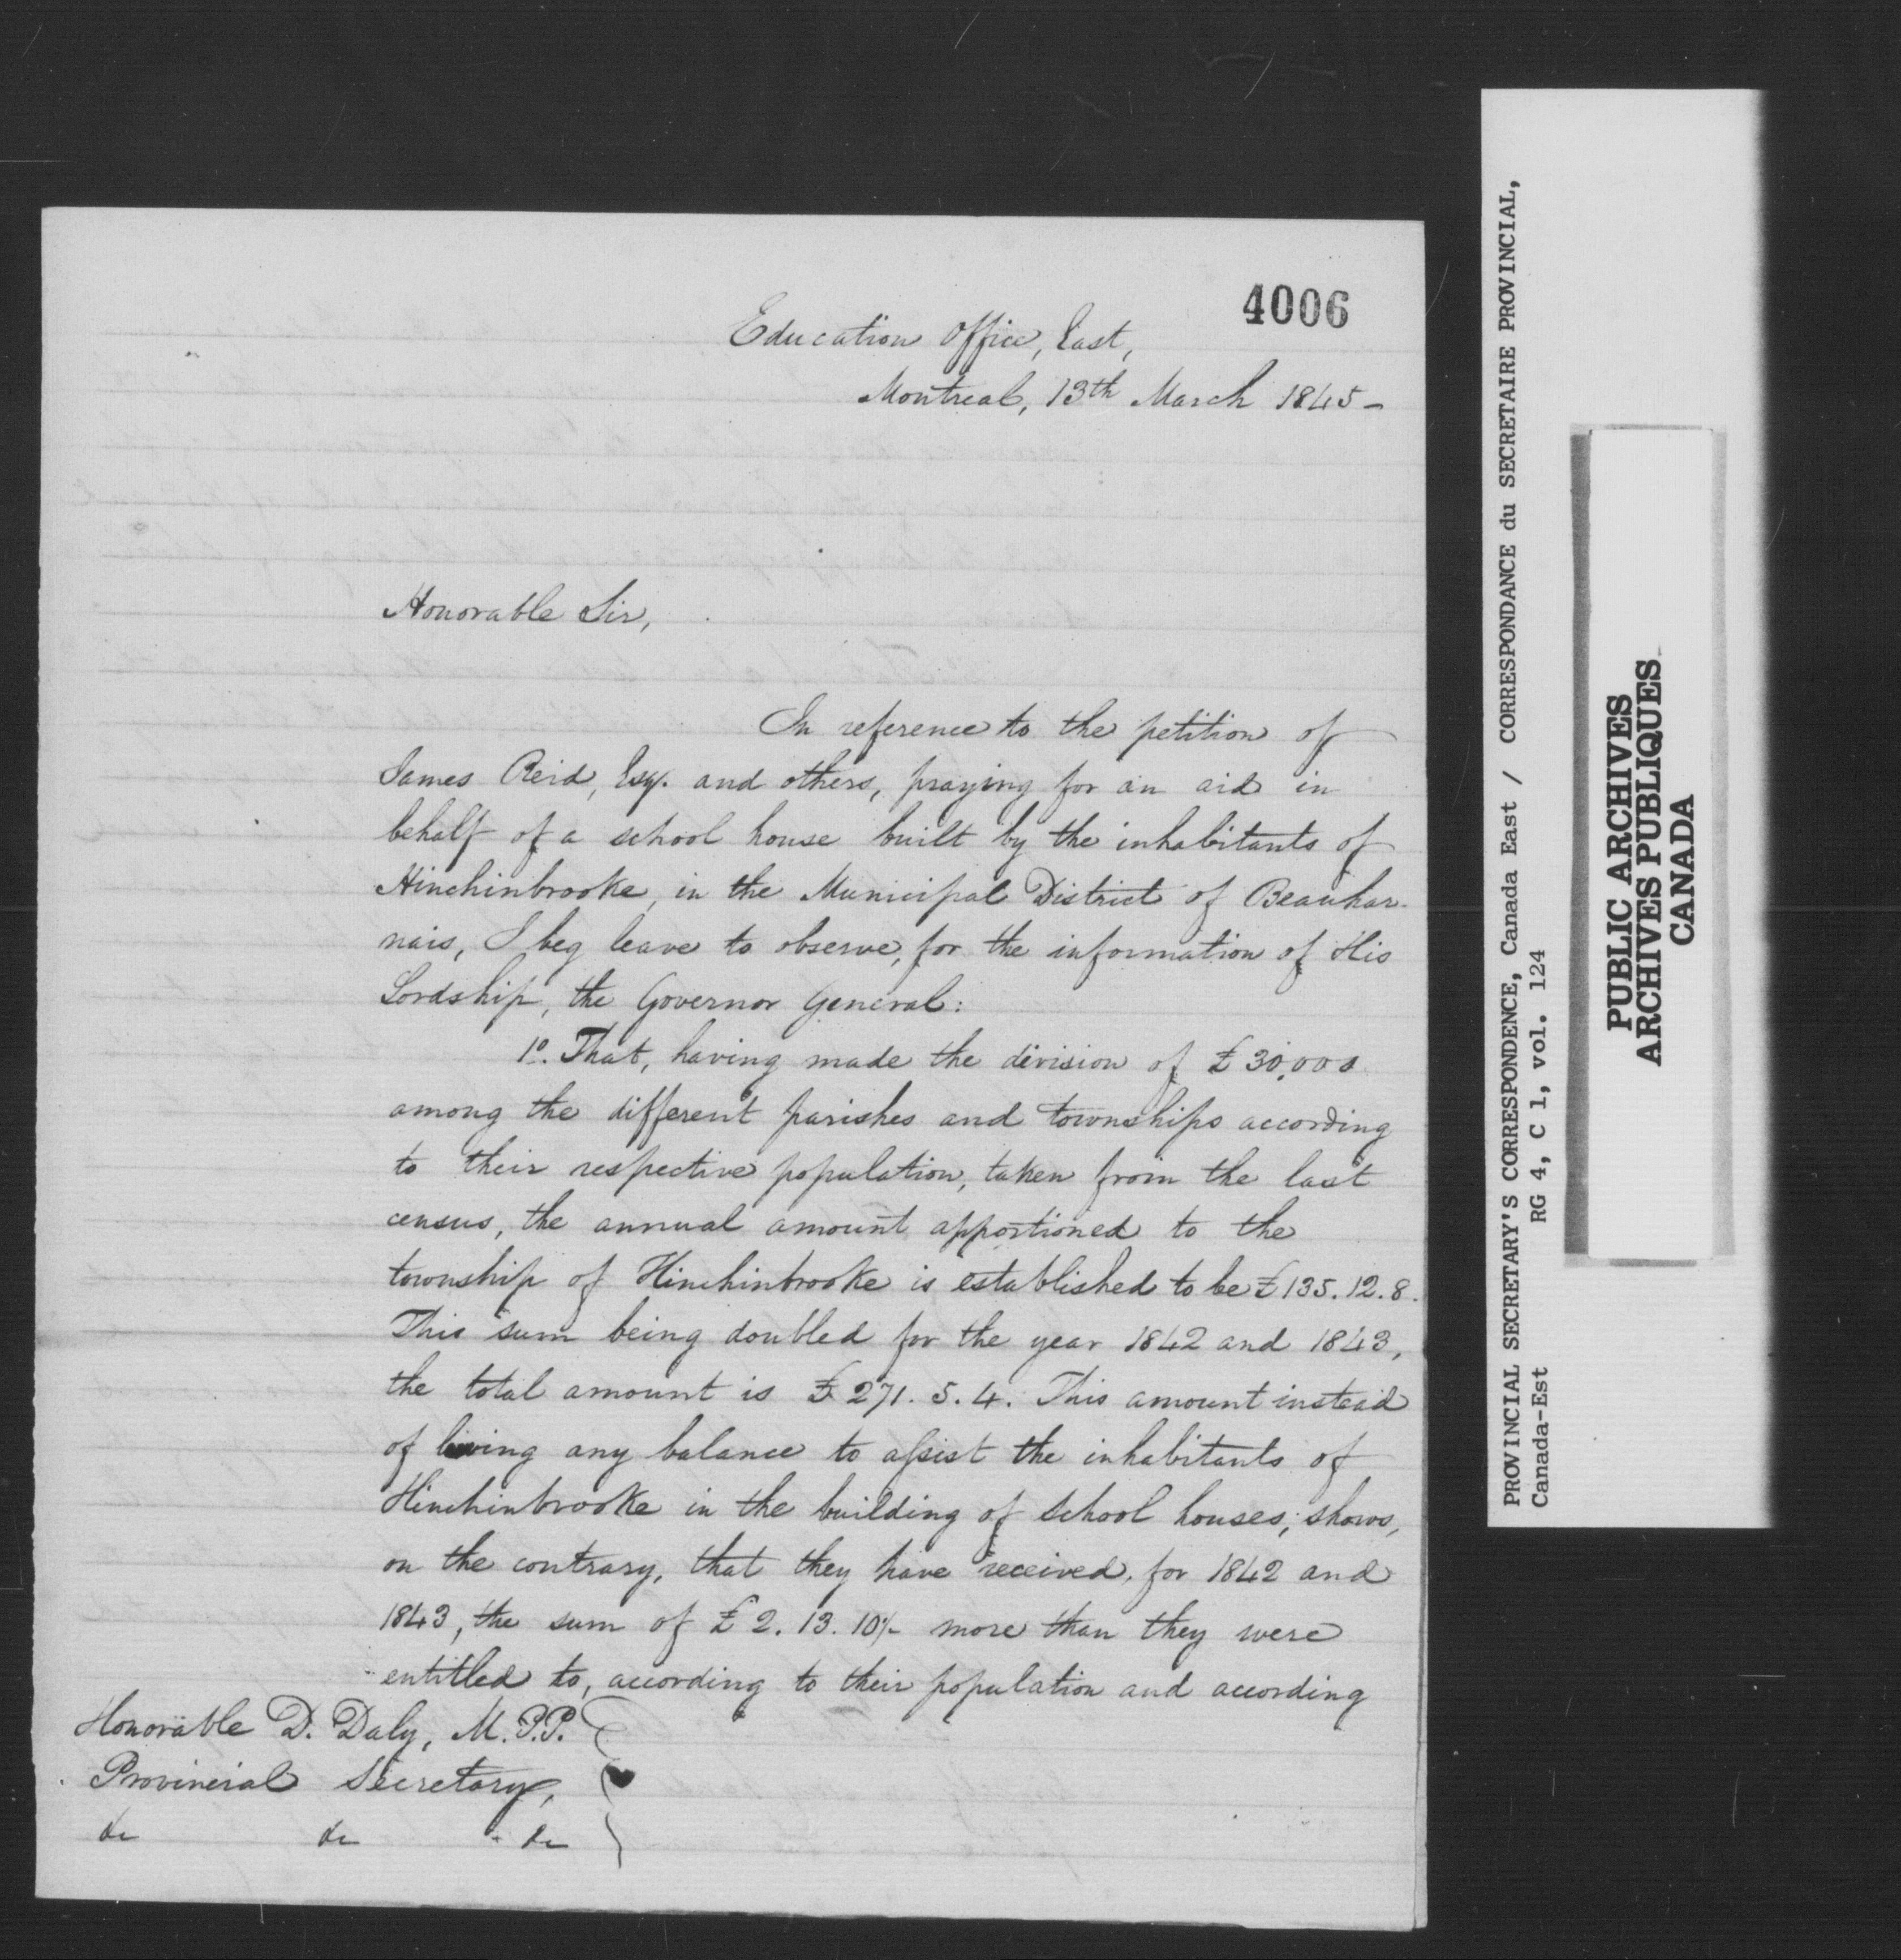 4006
Education Office, East,
Montreal, 13th March 1845 –
Honorable Sir,
In reference to the petition of
James Reid, Esqr. and others, praying for an aid in
behalf of a school house built by the inhabitants of
Hinchinbrooke, in the Municipal District of Beauhar-
nais, I beg leave to observe, for the information of His
Lordship, the Governor General:
1º. That, having made the division of £30,000
among the different parishes and townships according
to their respective population, taken from the last
census, the annual amount apportioned to the
township of Hinchinbrooke is established to be £135.12.8.
This sum being doubled for the year 1842 and 1843,
the total amount is £271.5.4. This amount instead
of any balance to assist the inhabitants of
Hinchinbrooke in the building of school houses; shows,
on the contrary, that they have received, for 1842 and
1843, the sum of £2.13.10/- more than they were
entitled to, according to their population and according
Honorable D. Daly, M.P.P.
Provincial Secretary,
&c &c &c
PROVINCIAL SECRETARY'S CORRESPONDENCE, Canada East / CORRESPONDANCE du SECRETAIRE PROVINCIAL,
Canada-Est RG 4, C 1, vol. 124
PUBLIC ARCHIVES
ARCHIVES PUBLIQUES
CANADA